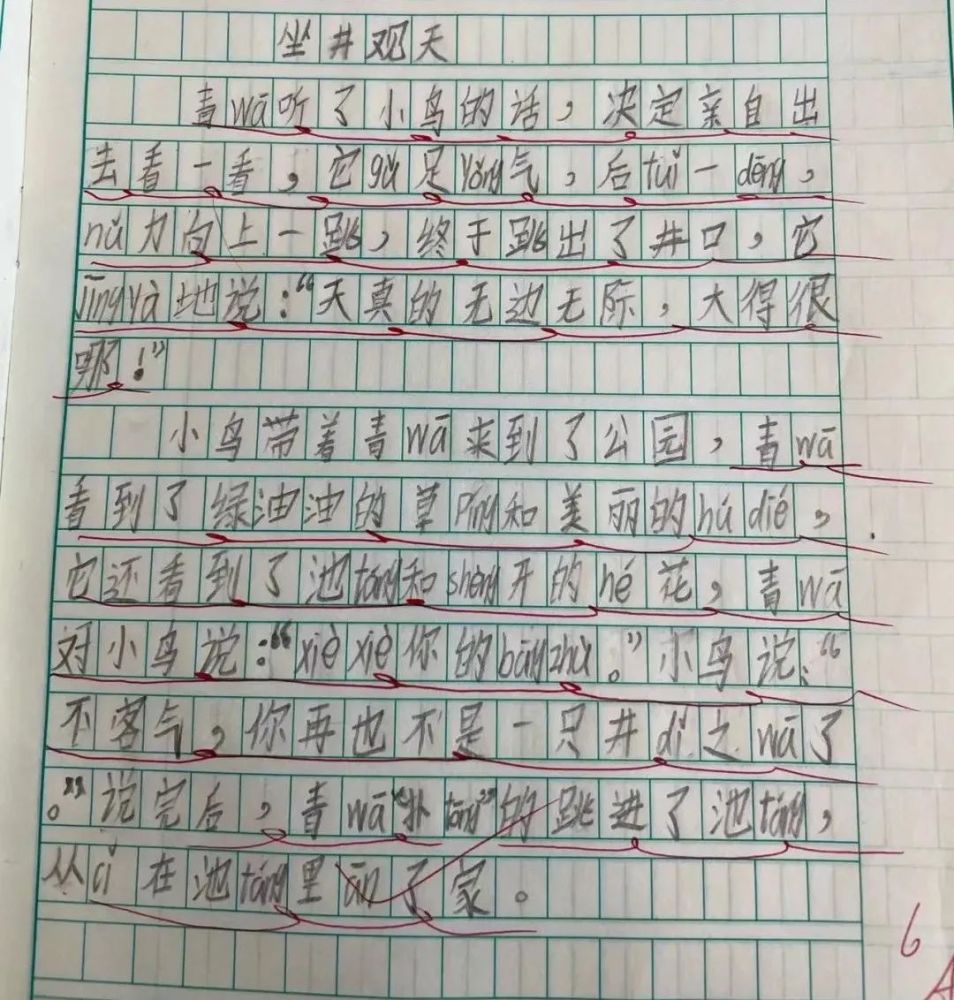 坐井观天
青wā听了小鸟的话，决定亲自出
去看一看，它gǔ足yǒng气，后tuì一dēng，
nǔ力向上一跳，终于跳出了井口，它
jīngyà地说：“天真的无边无际，大得很
哪！”
小鸟带着青wā来到了公园，青wā
看到了绿油油的草píng和美丽的hú dié，
它还看到了池táng和shèng开的hé花，青wā
对小鸟说：“xiè xiè你的bāngzhù。”小鸟说：“
不客气，你再也不是一只井dǐ之wā了
。”说完后，青wā“扑tōng”的跳进了池táng，
从cǐ在池táng里ān了家。
6
A